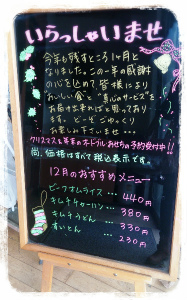 いらっしゃいませ
今年も残すところ1ヶ月と
なりました。この一年の感謝
の心を込めて皆様により
おいしい食と真心のサービスを
お届け出来ればと思っており
ます。どーぞごゆっくり
お楽しみ下さいませ・・・
クリスマス&年末のオードブル・おせちの予約受付中!!
尚、価格はすべて税込表示です。
12月のおすすめメニュー
ビーフオムライス … 440円
キムチチャーハン … 380円
キムチうどん … 330円
すいとん … 230円